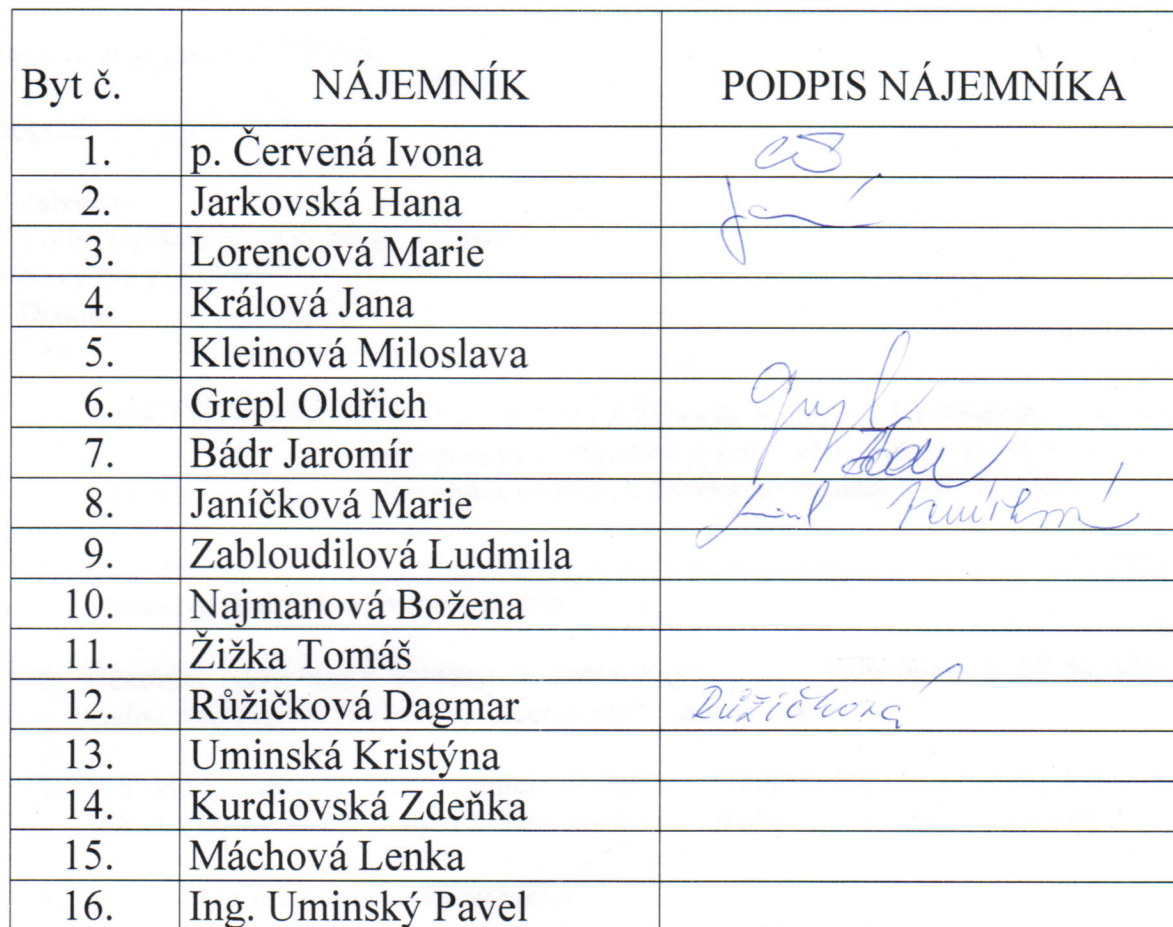 Byt č. NÁJEMNÍK PODPIS NÁJEMNÍKA
1. p. Červená Ivona
2. Jarkovská Hana
3. Lorencová Marie
4. Králová Jana
5. Kleinová Miloslava
6. Grepl Oldřich
7. Bádr Jaromír
8. Janíčková Marie
9. Zabloudilová Ludmila
10. Najmanová Božena
11. Žižka Tomáš
12. Růžičková Dagmar Růžičková
13. Uminská Kristýna
14. Kurdiovská Zdeňka
15. Máchová Lenka
16. Ing. Uminský Pavel